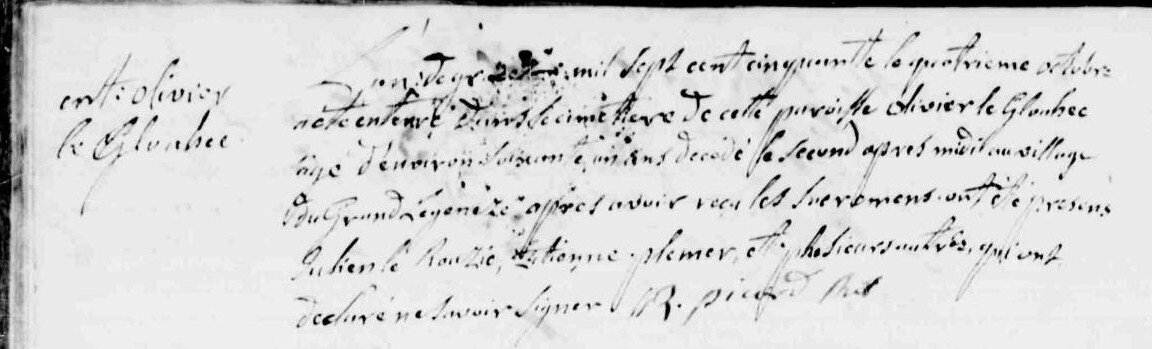 ent. olivier
le Glouhec
L'an de grace mil sept cent cinquante le quatrieme octobre
a eté enterré dans le cimettiere de cette paroisse olivier le Glouhec
agé d'environ soixante ans decedé le second apres midi au village
du Grand apres avoir reçu les sacremens ont été presens
Julien le Rouzic, Etienne plemer, et plusieurs autres, qui ont
declaré ne savoir signer R. picard